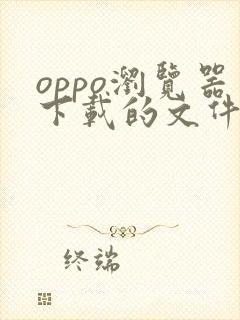 oppo瀏覽器
下載的文件
终端